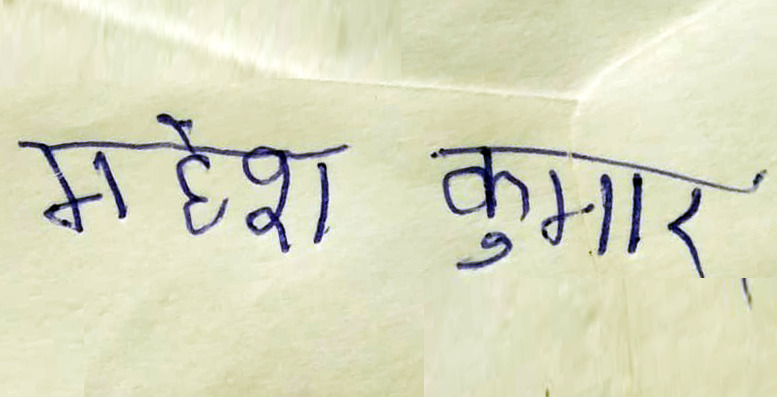 महेश कुमार